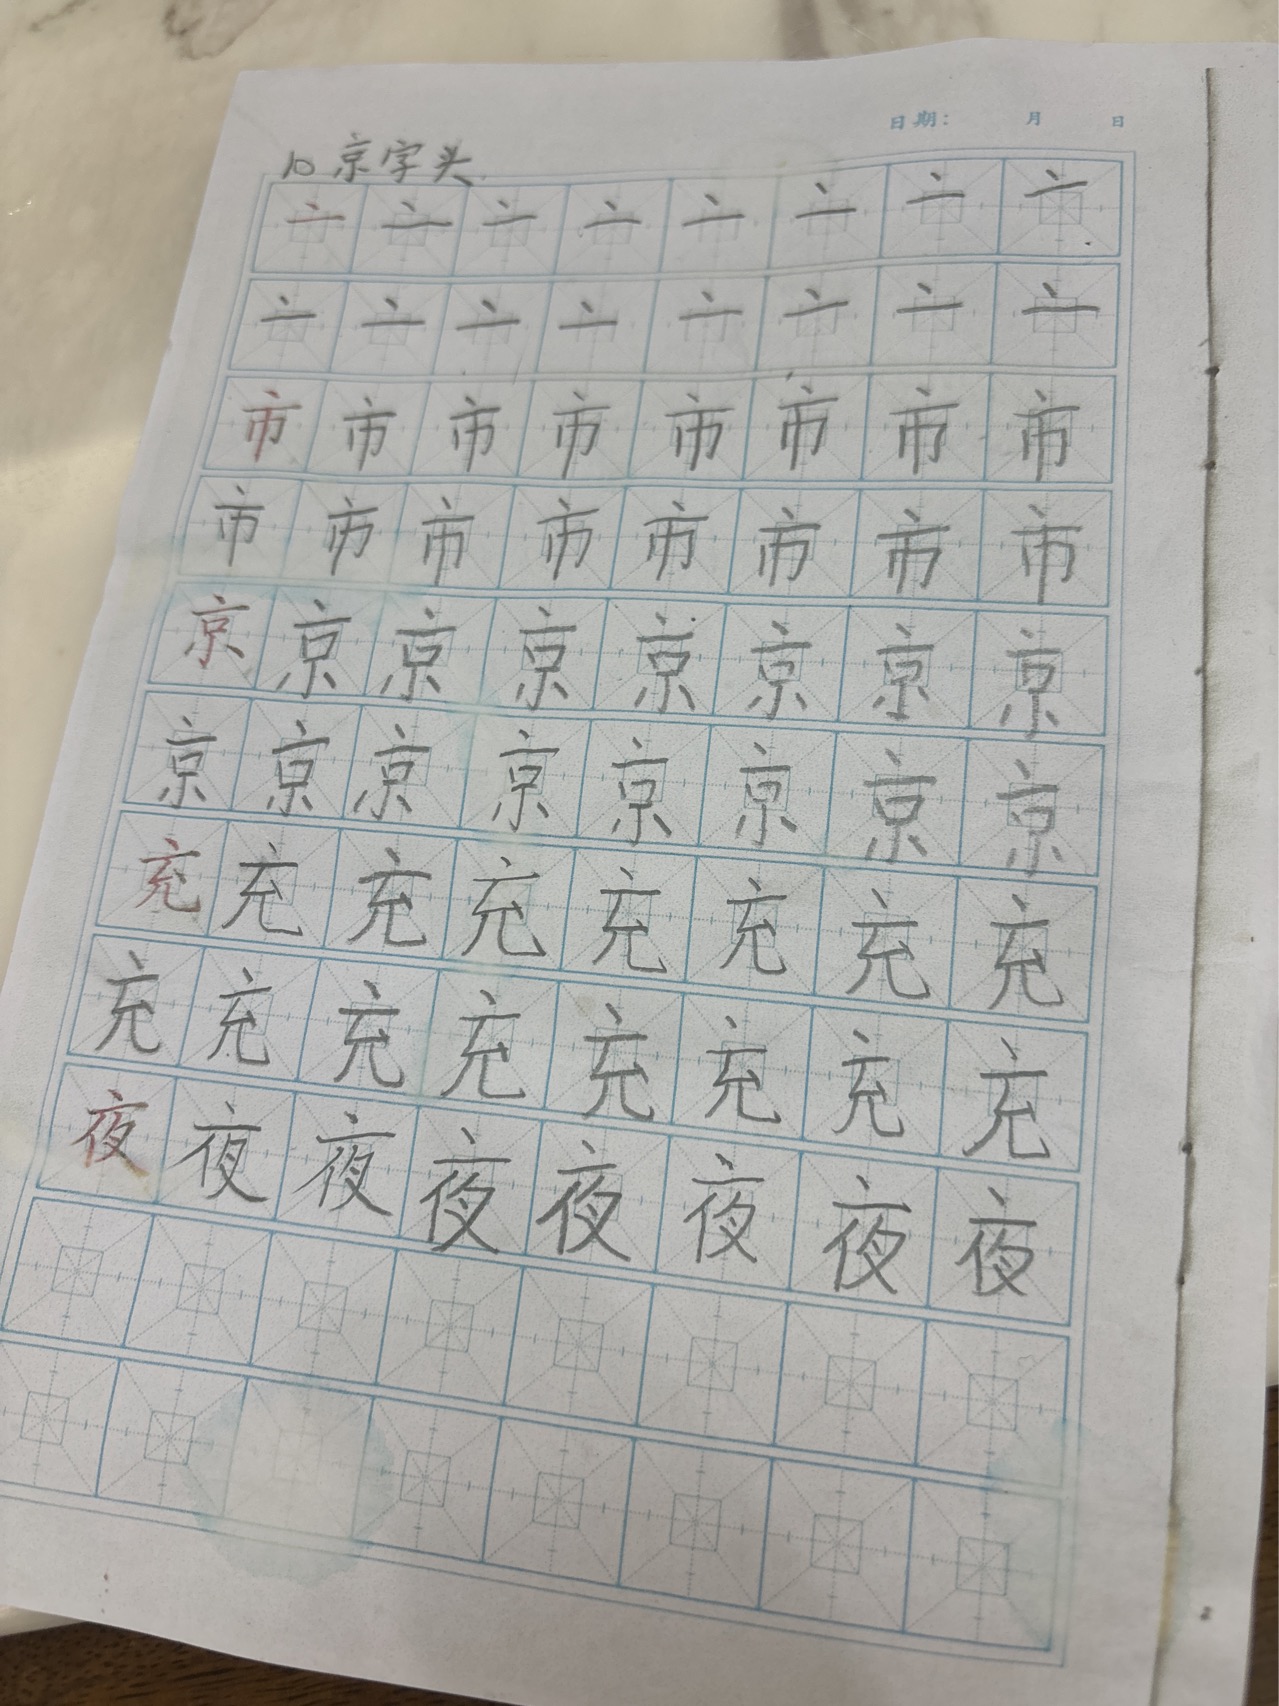 日期： 月 日
10 京字头
亠 亠 亠 亠 亠 亠 亠 亠
亠 亠 亠 亠 亠 亠 亠 亠
市 市 市 市 市 市 市 市
市 市 市 市 市 市 市 市
京 京 京 京 京 京 京 京
京 京 京 京 京 京 京 京
充 充 充 充 充 充 充 充
充 充 充 充 充 充 充 充
夜 夜 夜 夜 夜 夜 夜 夜